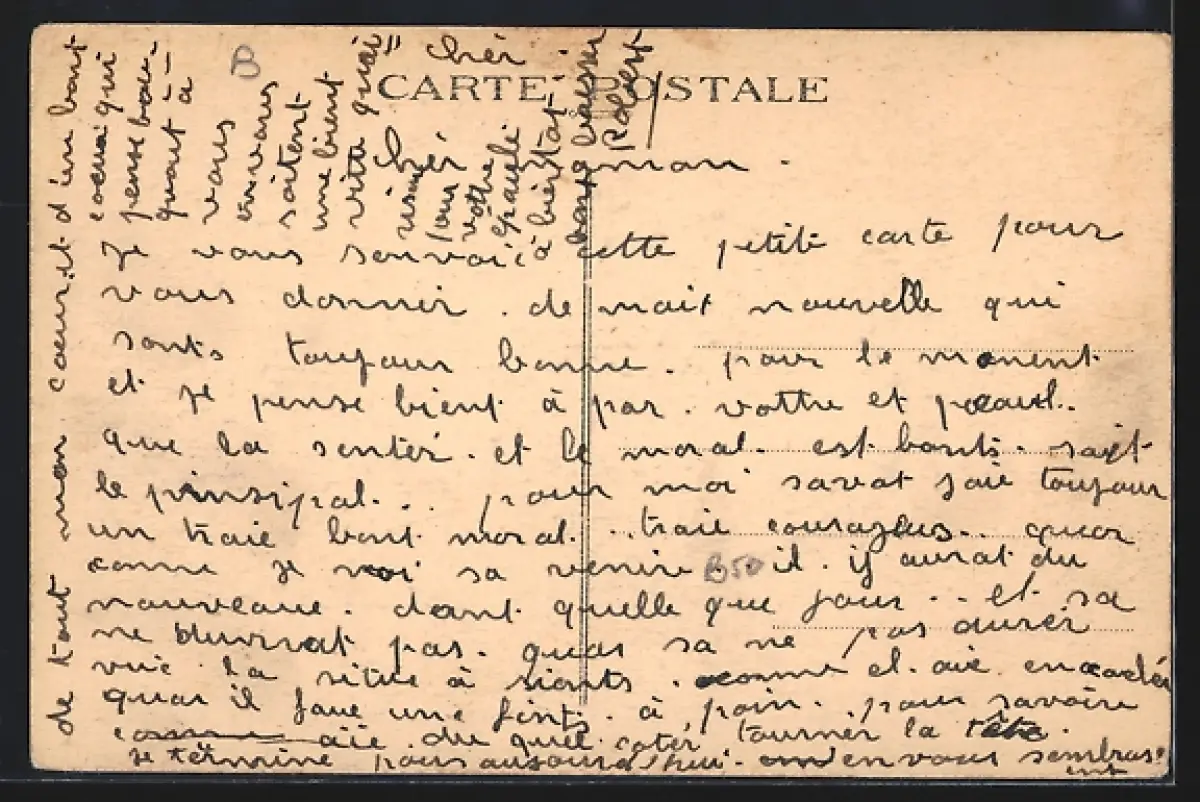 CARTE POSTALE
Chér maman.
Je vous envoi cette petite carte pour
vous donner. de mait nouvelle qui
sonts toujour bonne. pour le moment
et je pense bient à par. vottre et
que la sentér. et le moral. est bonts. sait
le prinsipal... pour moi savat jaie toujour
un traie bont moral... traie courageus.. quar
comme je voi sa venire.. il. iy aurat du
nouveaue. dant quelle que jour.. et sa
ne pas. quar sa ne pas durér
vue la situe à sionts. comme el. aie
quar il faue une fints. à poin. pour savoire
comme aie. du quel. coter tourner la tête.
je términe pour aujourd'hui. en vous
B50
de tout mon coeur. et d'un bont
coeur qui
pense
quant à
vous
vous
soitent
une bient
vite
Chér
pour
vottre
à bientot
bons baisér
Robert
B